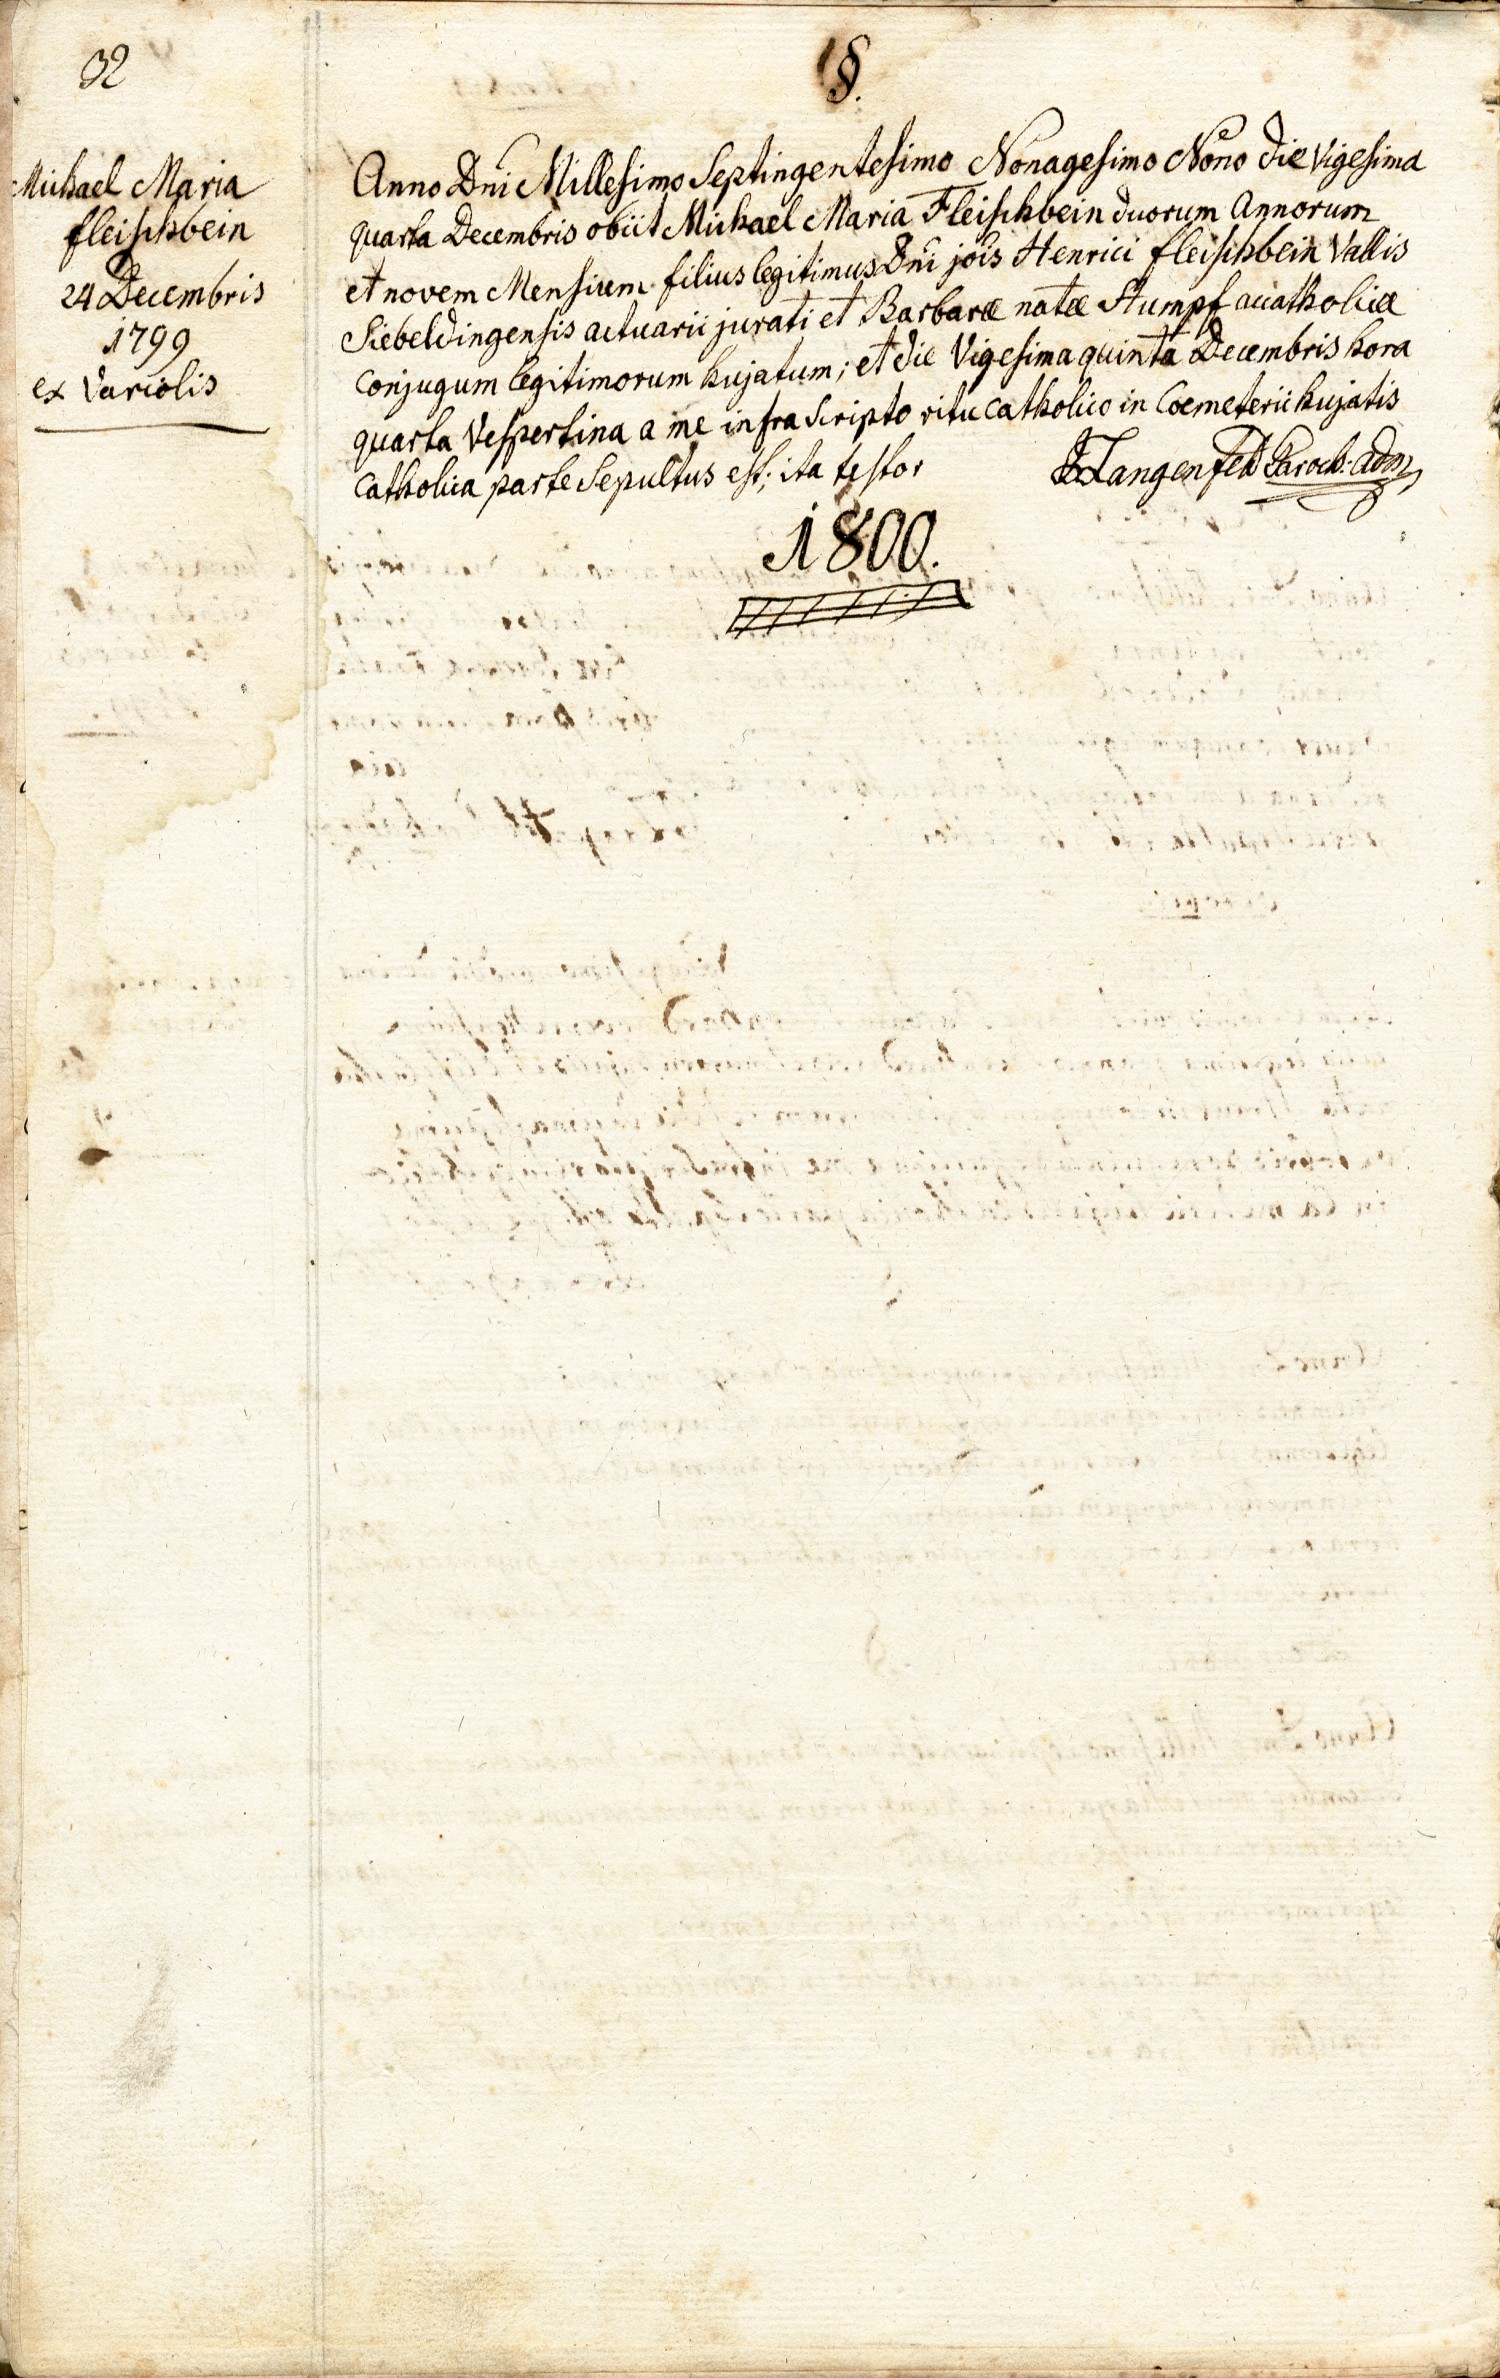 32
§.
Michael Maria
fleischbein
24 Decembris
1799
ex Variolis
Anno Dni Millesimo Septingentesimo Nonagesimo Nono die vigesima
quarta Decembris obiit Michael Maria Fleischbein duorum Annorum
et novem Mensium filius legitimus Dni jois Henrici fleischbein Vallis
Siebeldingensis actuarii jurati et Barbaræ natæ Stumpf acatholicæ
conjugum legitimorum hujatum; et die Vigesima quinta Decembris hora
quarta Vespertina a me infra Scripto ritu catholico in Coemeterii hujatis
catholica parte Sepultus est; ita testor
Langenfeld Paroch: adm
1800.